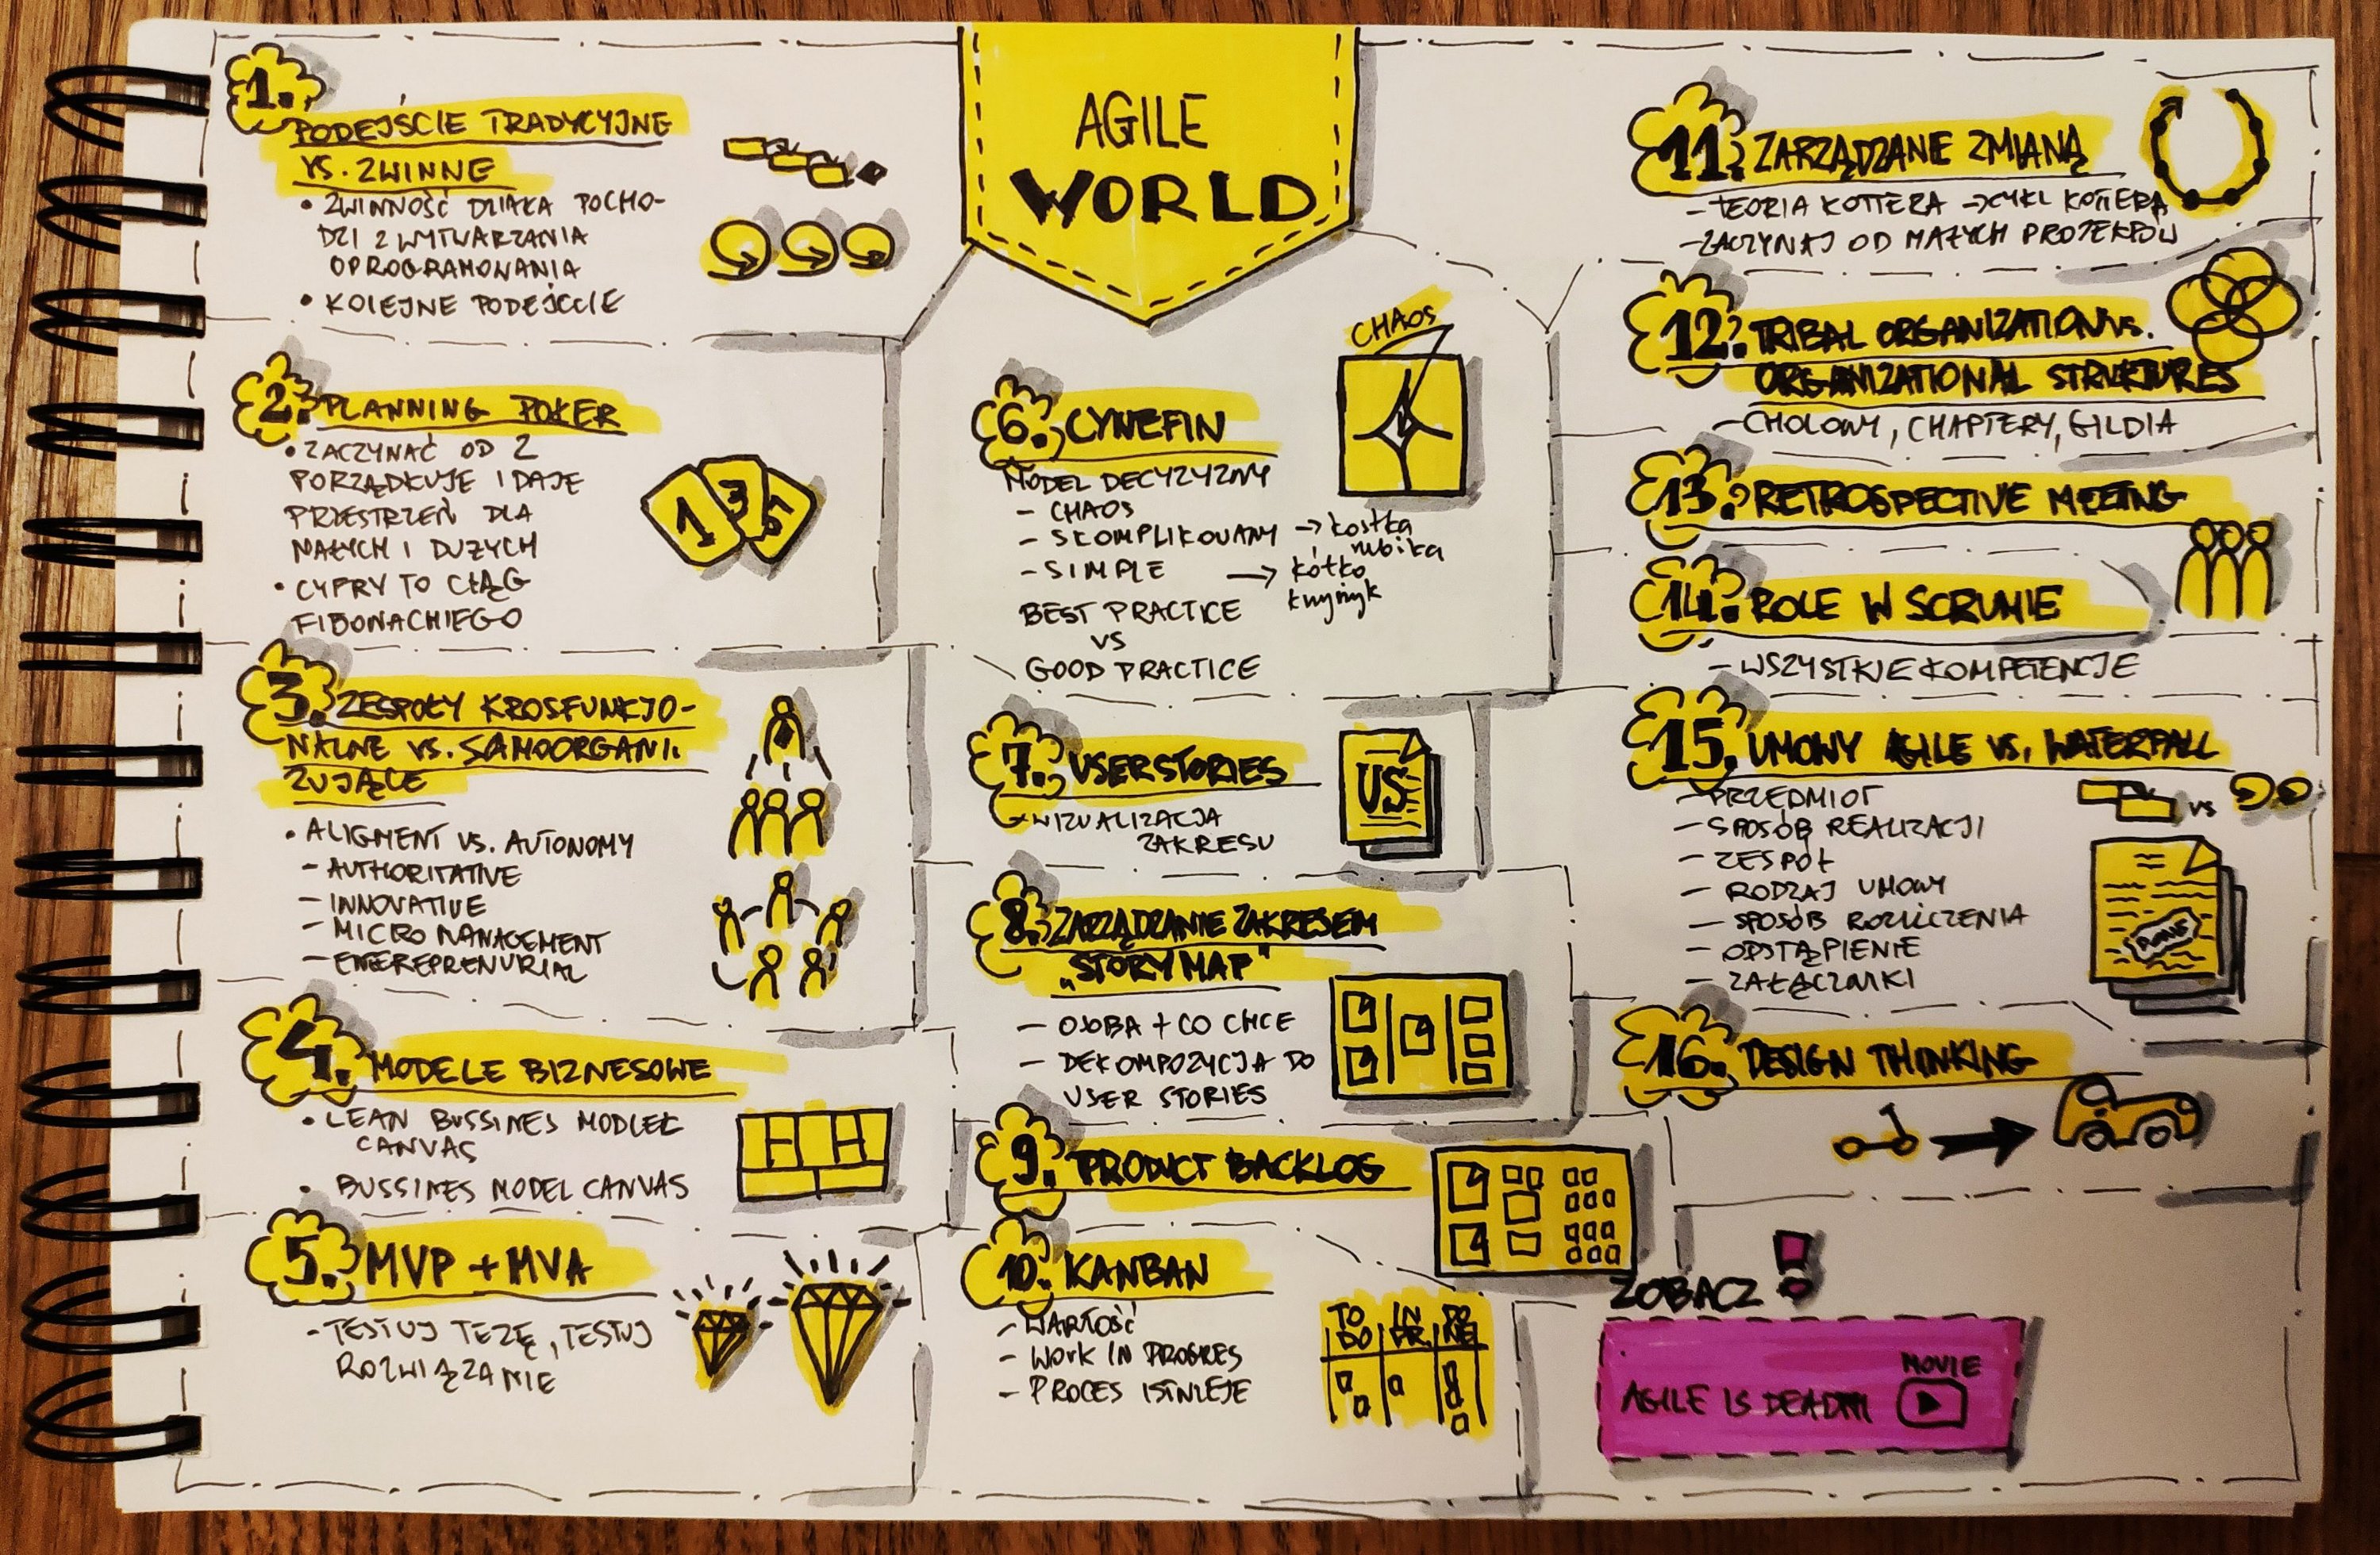 AGILE
WORLD
1. PODEJŚCIE TRADYCYJNE
VS. ZWINNE
• ZWINNOŚĆ DZIAŁA POCHO-
DZI Z WYTWARZANIA
OPROGRAMOWANIA
• KOLEJNE PODEJŚCIE
2. PLANNING POKER
• ZACZYNAĆ OD 2
PORZĄDKUJE I DAJE
PRZESTRZEŃ DLA
MAŁYCH I DUŻYCH
• CYFRY TO CIĄG
FIBONACHIEGO
1 3 5
3. ZESPOŁY KROSFUNKJO-
NALNE VS. SAMOORGANI-
ZUJĄCE
• ALIGMENT VS. AUTONOMY
- AUTHORITATIVE
- INNOVATIVE
- MICRO MANAGEMENT
- ENTEREPRENURIAL
4. MODELE BIZNESOWE
• LEAN BUSSINES MODLEL
CANVAS
• BUSSINES MODEL CANVAS
5. MVP + MVA
- TESTUJ TEZĘ, TESTUJ
ROZWIĄZANIE
6. CYNEFIN
CHAOS
MODEL DECYZYZNY
- CHAOS
- SKOMPLIKOWANY → kostka
rubika
- SIMPLE → kółko
krzyżyk
BEST PRACTICE
VS
GOOD PRACTICE
7. USER STORIES
- WIZUALIZACJA
ZAKRESU
US
8. ZARZĄDZANIE ZAKRESEM
„STORY MAP"
- OSOBA + CO CHCE
- DEKOMPOZYCJA DO
USER STORIES
9. PRODUCT BACKLOG
10. KANBAN
- WARTOŚĆ
- WORK IN PROGRES
- PROCES ISTNIEJE
TO DO
IN PR.
DO NE
11. ZARZĄDZANIE ZMIANĄ
- TEORIA KOTTERA → CYKL KOTTERA
- ZACZYNAJ OD MAŁYCH PROJEKTÓW
12. TRIBAL ORGANIZATION VS.
ORGANIZATIONAL STRUKTURES
- CHOLOWY, CHAPTERY, GILDIA
13. RETROSPECTIVE MEETING
14. ROLE W SCRUMIE
- WSZYSTKIE KOMPETENCJE
15. UMOWY AGILE VS. WATERFALL
- PRZEDMIOT
- SPOSÓB REALIZACJI
- ZESPÓŁ
- RODZAJ UMOWY
- SPOSÓB ROZLICZENIA
- ODSTĄPIENIE
- ZAŁĄCZNIKI
vs
16. DESIGN THINKING
ZOBACZ!
MOVIE
AGILE IS DEAD!!!